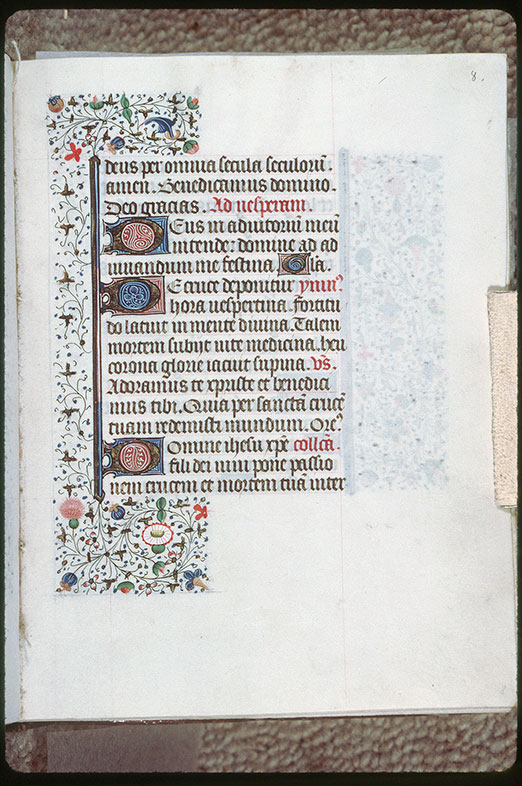 8.
deus per omnia secula seculorū.
amen. Benedicamus domino.
Deo gracias. Ad uesperam.
Deus in adiutoriū meū
intende: domine ad ad
iuuandum me festina. Gla.
De cruce deponitur ymnꝰ
hora uespertina. fortitu
do latuit in mente diuina. Talem
mortem subijt uite medicina. heu
corona glorie iacuit supina. vs̄.
Adoramus te xpriste et benedici
mus tibi. Quia per sanctā crucē
tuam redemisti mundum. Oreꝰ
Domine ihesu xp̄e collcā.
fili dei uiui pone passio
nem crucem et mortem tuā inter